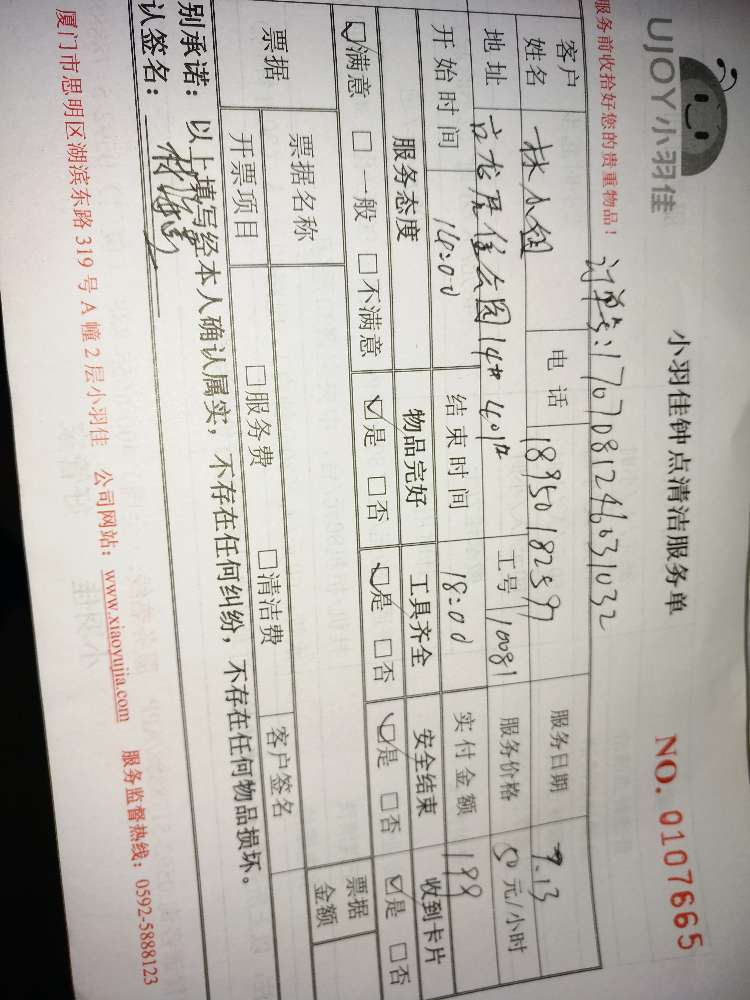 UJOY小羽佳
小羽佳钟点清洁服务单
NO. 0107665
服务前收拾好您的贵重物品！
订单号：1707081246031032
客户姓名 林小姐 电话 18950182597 服务日期 7.13
地址 古龙居住公园14# 401# 工号 10081 服务价格 50元/小时
开始时间 14:00 结束时间 18:00 实付金额 199
服务态度 物品完好 工具齐全 安全结束 收到卡片
☑满意 □一般 □不满意 ☑是 □否 ☑是 □否 ☑是 □否 ☑是 □否
票据 票据名称 □服务费 □清洁费 票据金额
开票项目 客户签名
别承诺：以上填写经本人确认属实，不存在任何纠纷，不存在任何物品损坏。
认签名：
厦门市思明区湖滨东路319号A幢2层小羽佳 公司网站：www.xiaoyujia.com 服务监督热线：0592-5888123